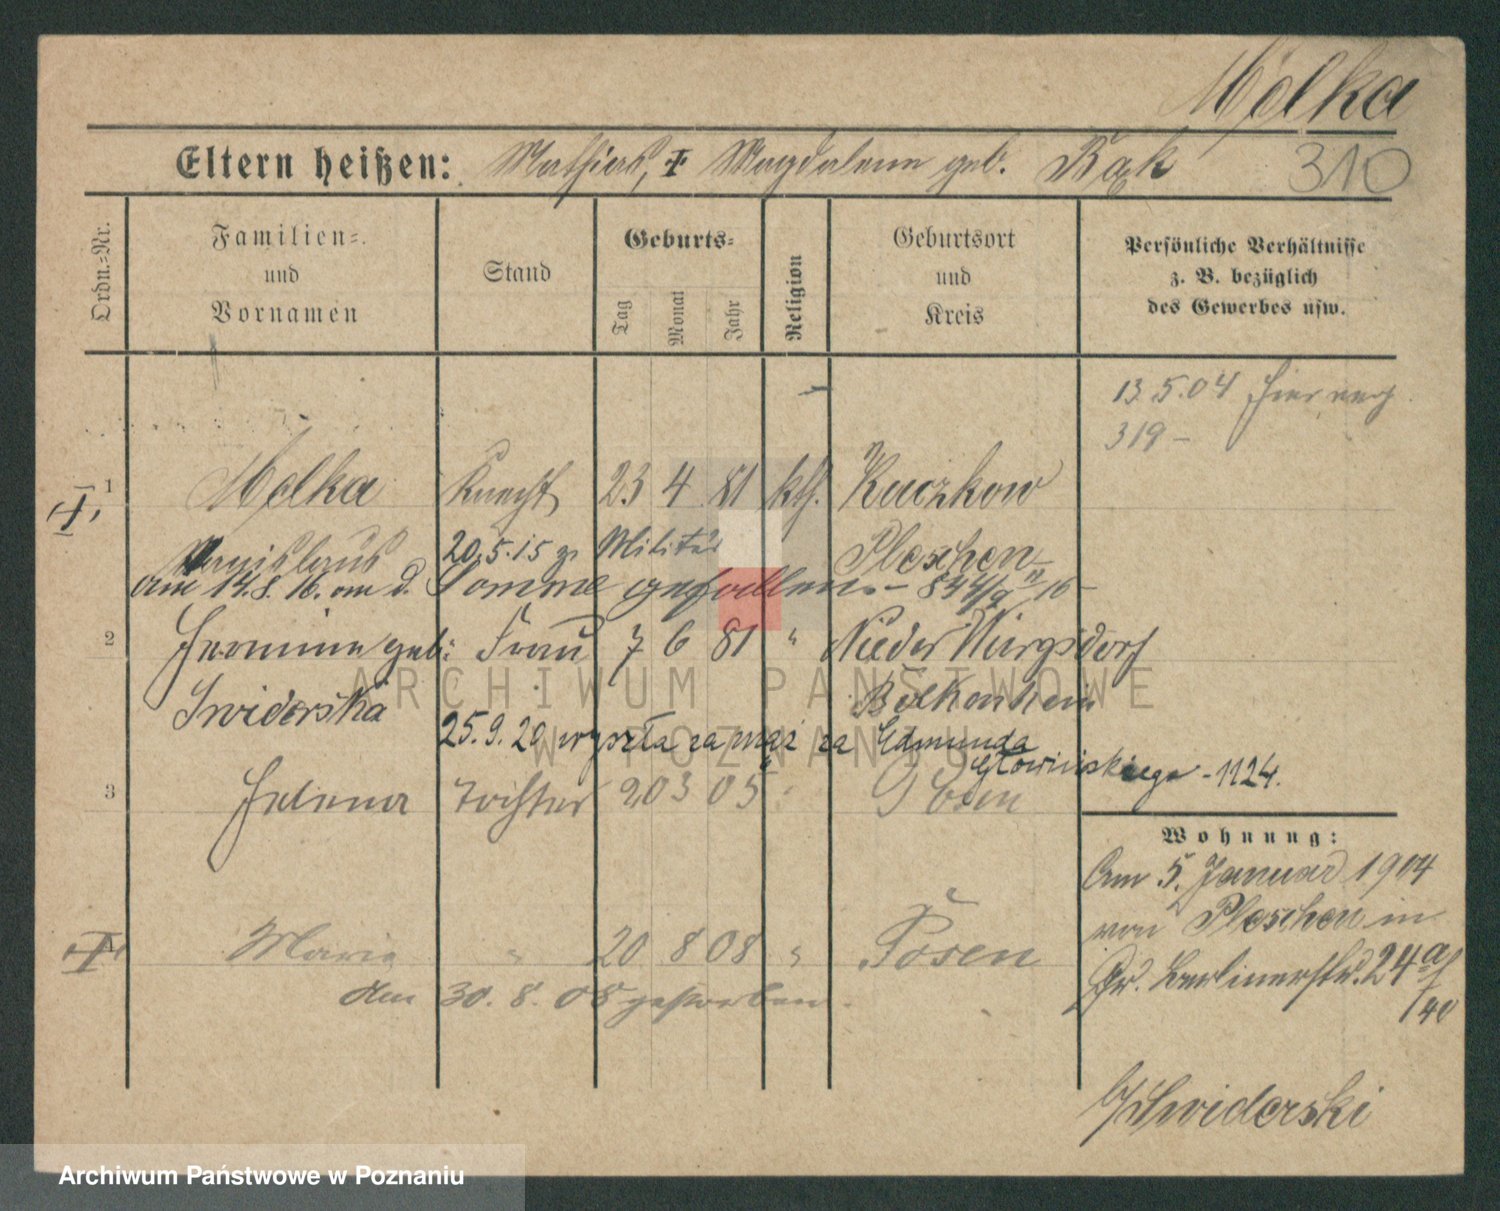 Melka
Eltern heißen: Mathias, ✝ Magdalena geb. Bąk
310
Ordn.-Nr.
Familien-
und
Vornamen
Stand
Geburts-
Tag
Monat
Jahr
Religion
Geburtsort
und
Kreis
Persönliche Verhältnisse
z. B. bezüglich
des Gewerbes usw.
13.5.04 hier
319 –
1 Melka Knecht 23 4 81 kth. Kuczkow
20.5.15 z. Militär Pleschen
am 14.8.16. an d. Somme gefallen. – 844/9 16 –
2 Hermine geb: Frau 7 6 81 " Nieder Würgsdorf
Swiderska Bolkenhain
25.9.20 wyszła za mąż za Edmunda
Głowińskiego - 1124.
3 Helena Tochter 20 3 05 " Posen
Maria " 20 8 08 " Posen
den 30. 8. 08 gestorben.
Wohnung:
Am 5. Januar 1904
von Pleschen in
Gr. Berlinerstr. 24a
Swiderski
ARCHIWUM PAŃSTWOWE
W POZNANIU
Archiwum Państwowe w Poznaniu